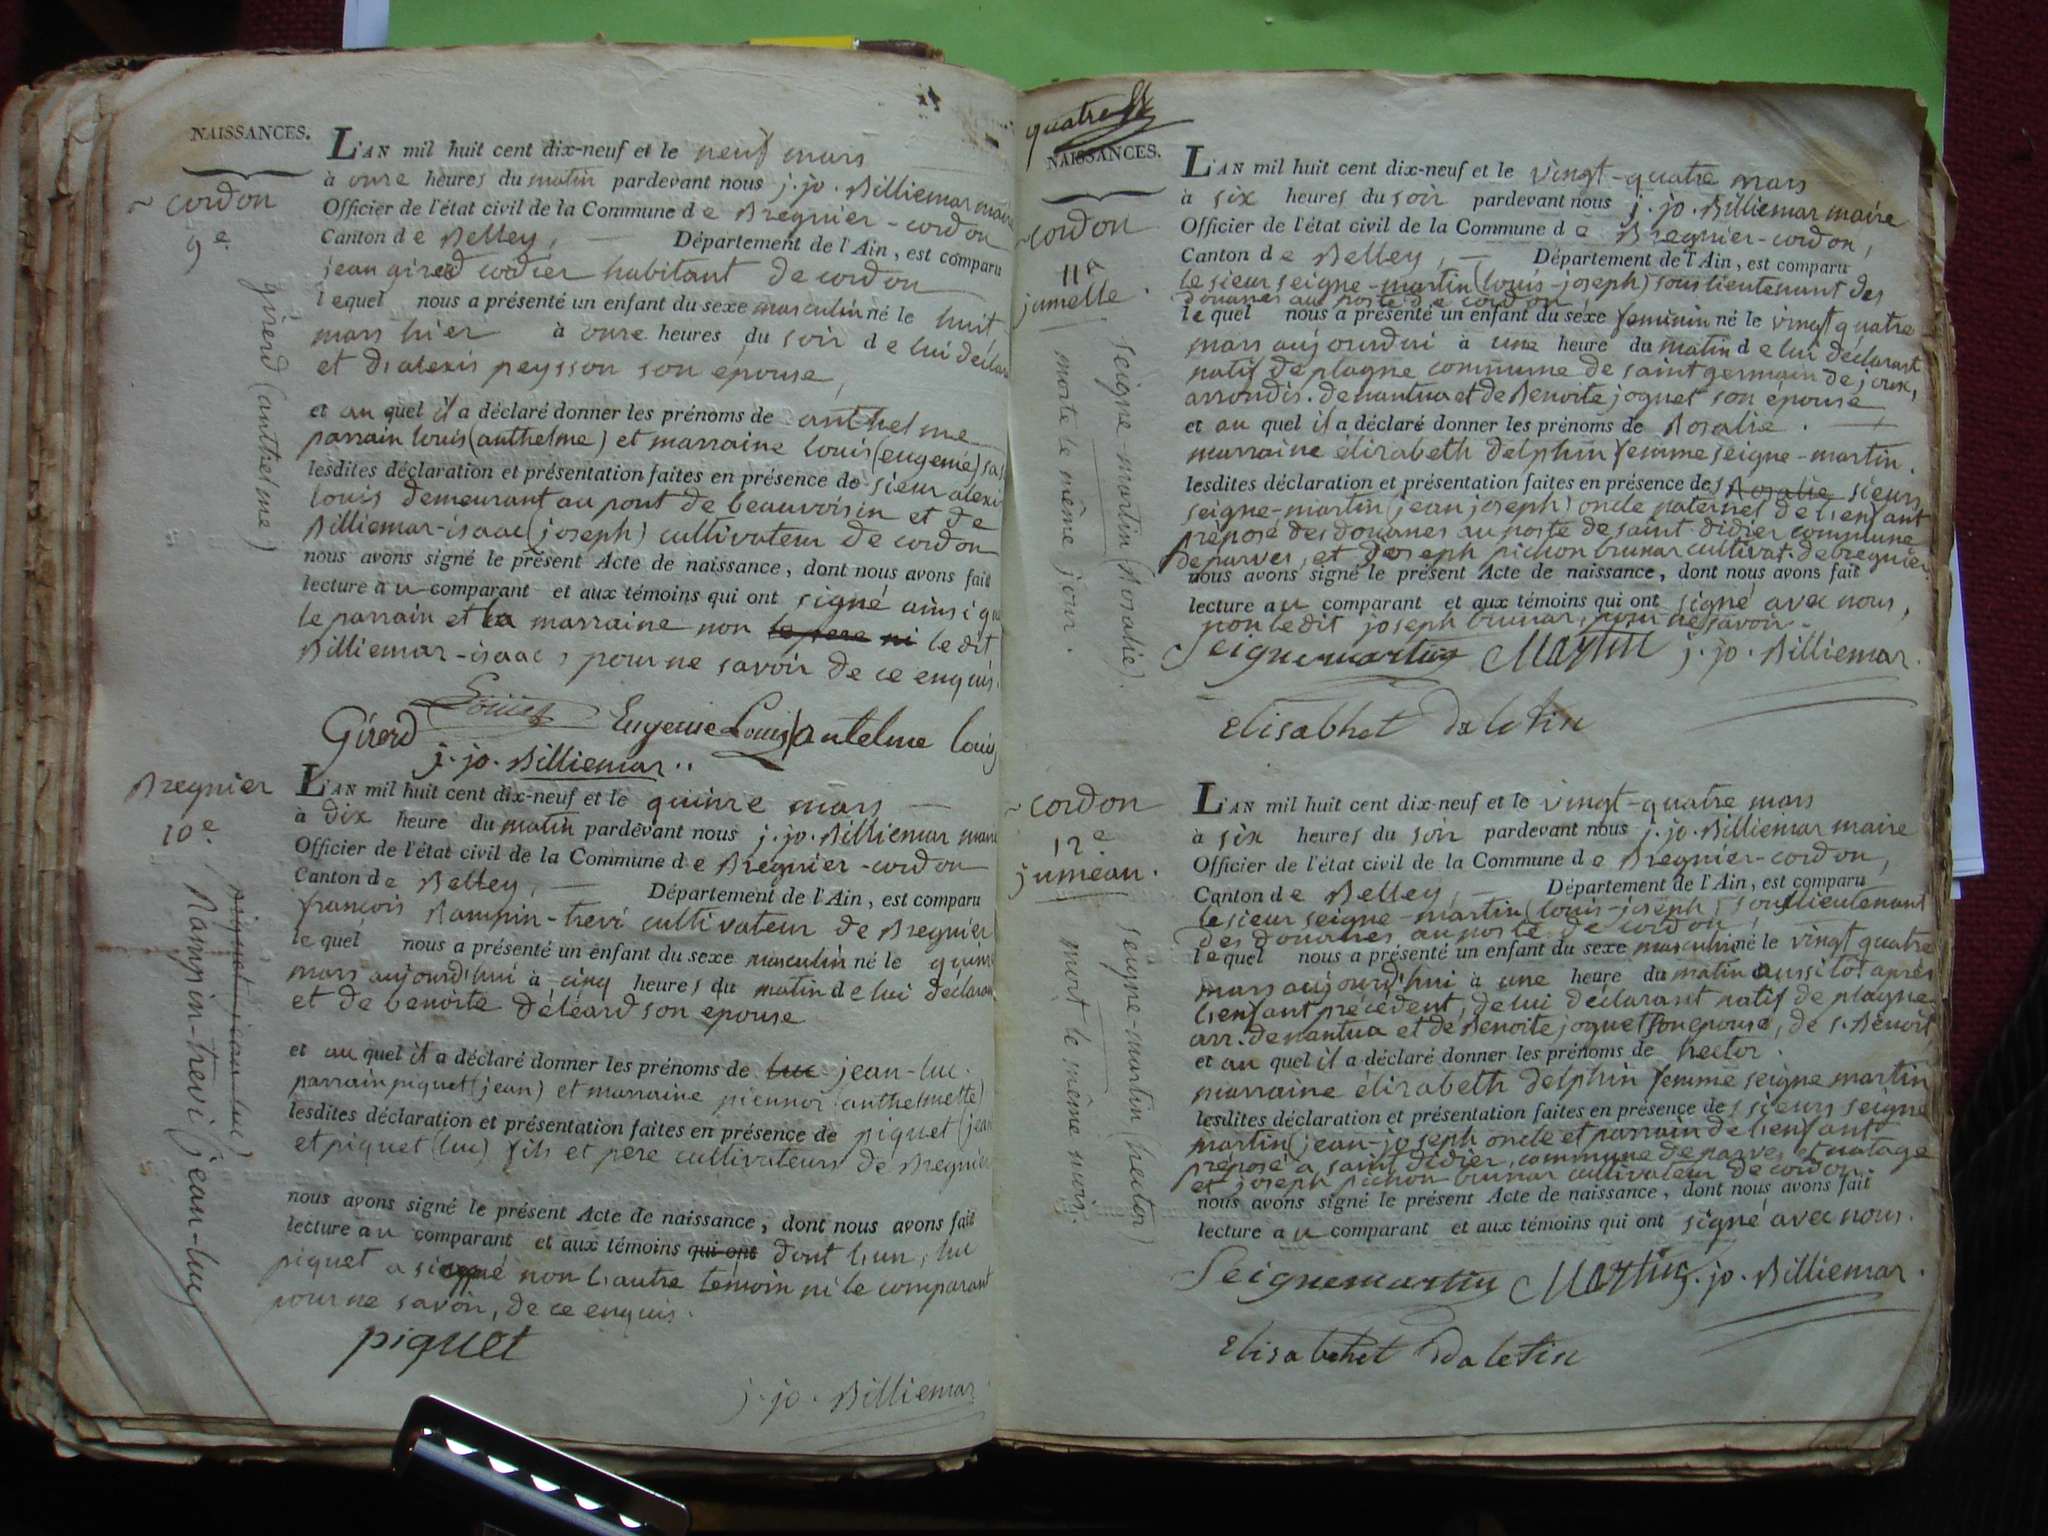 NAISSANCES.
~ cordon
9e.
girerd (anthelme)
L'AN mil huit cent dix-neuf et le neuf mars
à onze heures du matin pardevant nous j. jo. Billiemaz maire
Officier de l'état civil de la Commune de Bregnier-cordon
Canton de Belley, — Département de l'Ain, est comparu
jean girerd cordier habitant de cordon
lequel nous a présenté un enfant du sexe masculin né le huit
mars hier à onze heures du soir de lui déclar
et d'alexis peysson son épouse,
et au quel il a déclaré donner les prénoms de anthelme
parrain louis (anthelme) et marraine louis (eugenie)
lesdites déclaration et présentation faites en présence de sieur alexis
louis demeurant au pont de beauvoisin et de
Billiemaz-isaac (joseph) cultivateur de cordon
nous avons signé le présent Acte de naissance, dont nous avons fait
lecture au comparant et aux témoins qui ont signé ainsi que
le parrain et la marraine non le pere ni le dit
Billiemaz-isaac, pour ne savoir de ce enquis.
Girerd Louis Eugenie Louis antelme louis
j. jo. Billiemaz..
Bregnier
10e.
piquet (jean-luc)
Rampin-trevi (jean-luc)
L'AN mil huit cent dix-neuf et le quinze mars —
à dix heure du matin pardevant nous j. jo. Billiemaz maire
Officier de l'état civil de la Commune de Bregnier-cordon
Canton de Belley, — Département de l'Ain, est comparu
francois Rampin-trevi cultivateur de Bregnier
lequel nous a présenté un enfant du sexe masculin né le quinze
mars aujourd'hui à cinq heures du matin de lui déclarant
et de benoite déléard son épouse
et au quel il a déclaré donner les prénoms de luc jean-luc.
parrain piquet (jean) et marraine (anthelmette)
lesdites déclaration et présentation faites en présence de piquet (jean
et piquet (luc) fils et père cultivateurs de Bregnier
nous avons signé le présent Acte de naissance, dont nous avons fait
lecture au comparant et aux témoins qui ont dont l'un, luc
piquet a signé non l'autre témoin ni le comparant
pour ne savoir, de ce enquis.
piquet
j. jo. Billiemaz
quatre
NAISSANCES.
~cordon
11e
jumelle.
seigne-martin (Rosalie).
morte le même jour.
L'AN mil huit cent dix-neuf et le vingt-quatre mars
à six heures du soir pardevant nous j. jo. Billiemaz maire
Officier de l'état civil de la Commune de Bregnier-cordon,
Canton de Belley, — Département de l'Ain, est comparu
le sieur seigne-martin (louis-joseph) sous lieutenant des
douanes au poste de cordon
lequel nous a présenté un enfant du sexe feminin né le vingt quatre
mars aujourdui à une heure du matin de lui déclarant
natif de plagne commune de saint germain de joux,
arrondis. de nantua et de Benoite joguet son épouse
et au quel il a déclaré donner les prénoms de Rosalie.
marraine élizabeth delphin femme seigne-martin.
lesdites déclaration et présentation faites en présence des Rosalie sieurs
seigne-martin (jean joseph) oncle paternel de l'enfant
préposé des douanes au poste de saint didier commune
de parves, et joseph pichon brunar cultivat. de bregnier.
nous avons signé le présent Acte de naissance, dont nous avons fait
lecture au comparant et aux témoins qui ont signé avec nous,
non le dit joseph brunar, pour ne savoir.
Seignemartin Martin j. jo. Billiemaz.
Elisabhet Daletin
~ cordon
12e
jumeau.
seigne-martin (hector)
mort le même mois.
L'AN mil huit cent dix-neuf et le vingt-quatre mars
à six heures du soir pardevant nous j. jo. Billiemaz maire
Officier de l'état civil de la Commune de Bregnier-cordon,
Canton de Belley, — Département de l'Ain, est comparu
le sieur seigne-martin (louis-joseph) sous lieutenant
des douanes au poste de cordon
lequel nous a présenté un enfant du sexe masculin né le vingt quatre
mars aujourd'hui à une heure du matin aussitôt après
l'enfant précédent, de lui déclarant natif de plagne
arr. de nantua et de Benoite joguet son epouse, de s. Benoit,
et au quel il a déclaré donner les prénoms de hector.
marraine élizabeth delphin femme seigne martin
lesdites déclaration et présentation faites en présence des sieurs seigne
martin (jean-joseph oncle et parrain de l'enfant
préposé a saint didier, commune de parves
et joseph pichon brunar cultivateur de cordon.
nous avons signé le présent Acte de naissance, dont nous avons fait
lecture au comparant et aux témoins qui ont signé avec nous.
Seignemartin Martin j. jo. Billiemaz.
Elisabehet Daletin